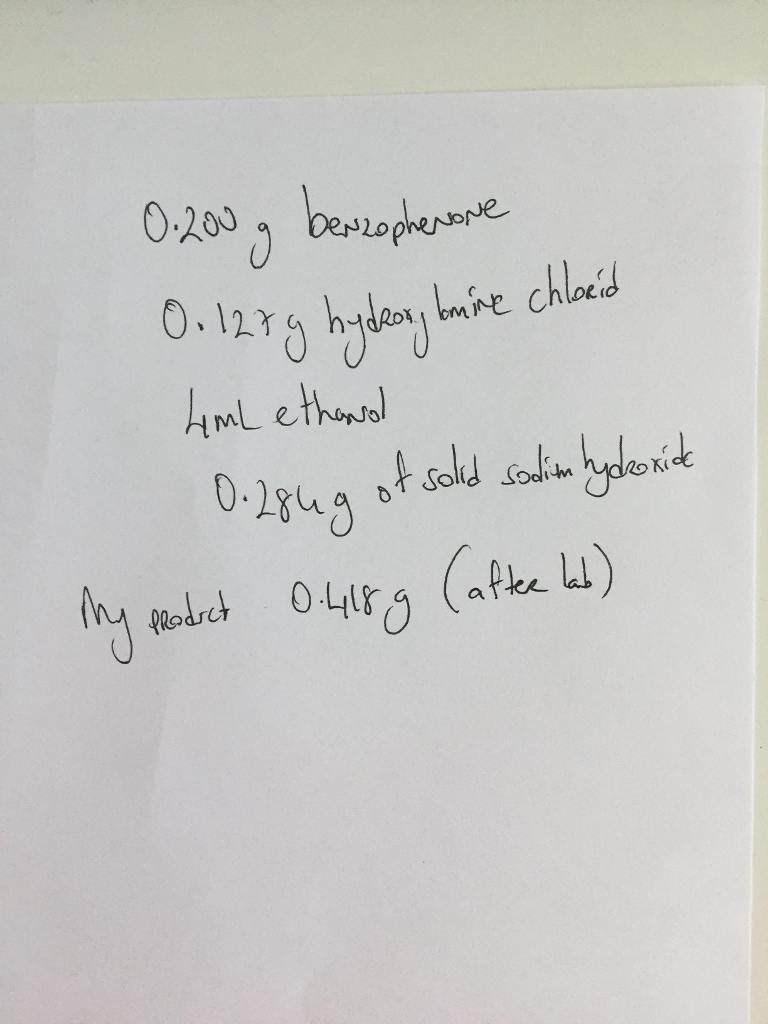 0.200 g benzophenone
0.127g hydroxylomine chlorid
4mL ethanol
0.284g of solid sodium hydroxide
My product 0.418g (after lab)